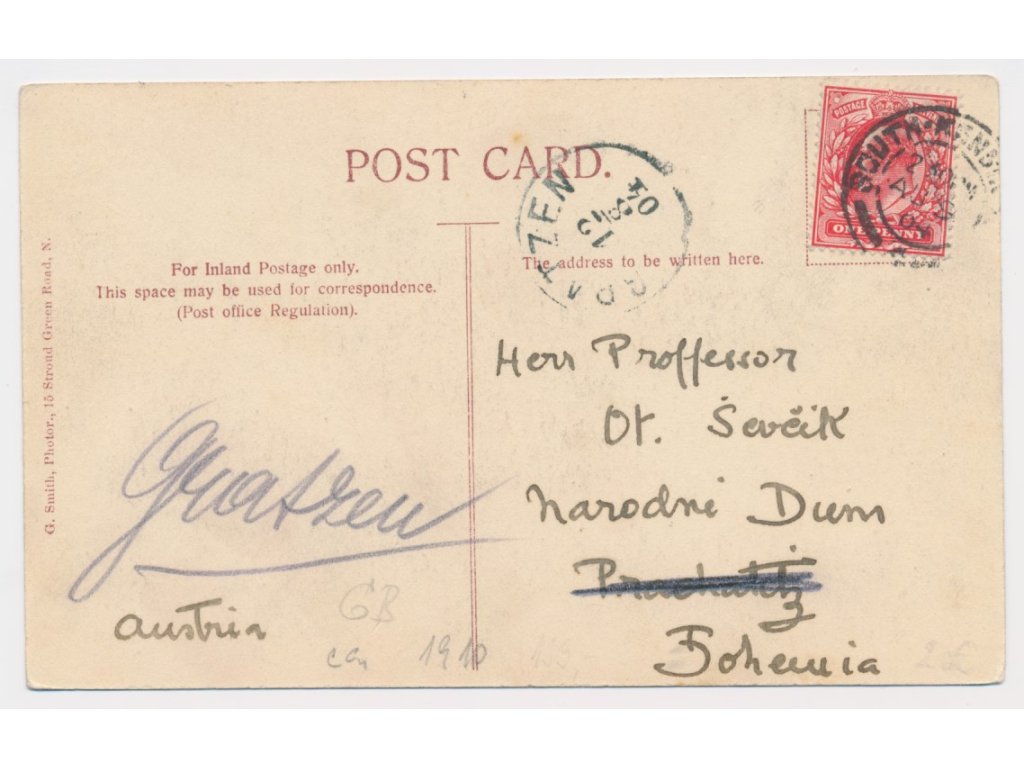 POST CARD.
POSTAGE
ONE PENNY
SOUTH
GRATZEN
12
04
For Inland Postage only.
This space may be used for correspondence.
(Post office Regulation).
The address to be written here.
G. Smith, Photor., 15 Stroud Green Road, N.
Herr Proffessor
Ot. Ševčik
Narodni Dum
Prachatitz
Bohemia
Gratzen
Austria
GB
1910